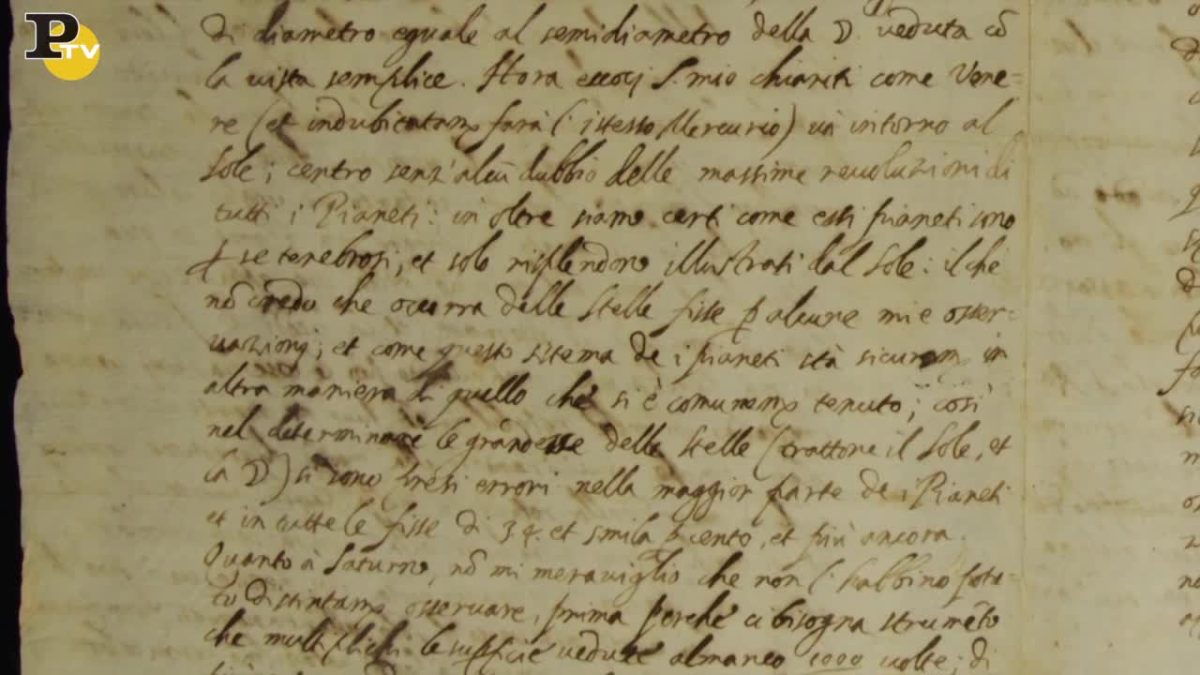 P TV
di diametro eguale al semidiametro della ☽ veduta cō
la vista semplice. Hora eccoci S. mio chiariti come Vene=
re (et indubitatamᵉ farà l' istesso Mercurio) và intorno al
Sole; centro senz' alcū dubbio delle massime revoluzioni di
tutti i Pianeti: in oltre siamo certi come essi pianeti sono
ꝑ se tenebrosi, et solo risplendono illustrati dal Sole: il che
nō credo che occorra delle stelle fisse ꝑ alcune mie osser-
vazioni; et come questo sistema de i pianeti stà sicuram in
altra maniera di quello che si è comunemᵉ tenuto; così
nel determinare le grandezze delle stelle (trattone il Sole, et
la ☽) si sono presi errori nella maggior parte de i Pianeti
et in tutte le fisse di 3 4. et 5 mila ꝑ cento, et più ancora.
Quanto à Saturno, nō mi meraviglio che non l' habbino poto-
to distintamᵉ osservare, prima perche ci bisogna strumēto
che multiplichi le suꝑficie vedute almanco 1000 volte; di